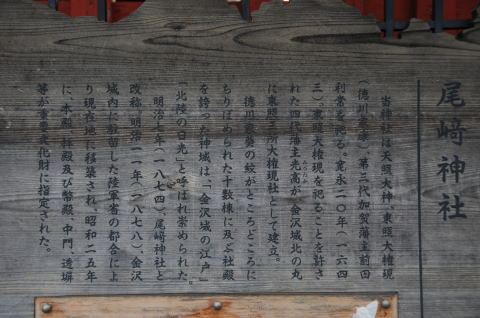 尾﨑神社
当神社は天照大神、東照大権現
（徳川家康）、第三代加賀藩主前田
利常を祀る。寛永二〇年（一六四
三）、東照大権現を祀ることを許さ
れた四代藩主光高が、金沢城北の丸
に東照三所大権現社として建立。
徳川家葵の紋がところどころに
ちりばめられた十数棟に及ぶ社殿
を誇った神域は、「金沢城の江戸」
「北陸の日光」と呼ばれ崇められた。
明治七年（一八七四）、尾﨑神社と
改称。明治一一年（一八七八）、金沢
城内に駐留した陸軍省の都合によ
り現在地に移築され、昭和二五年
に、本殿、拝殿及び幣殿、中門、透塀
等が重要文化財に指定された。